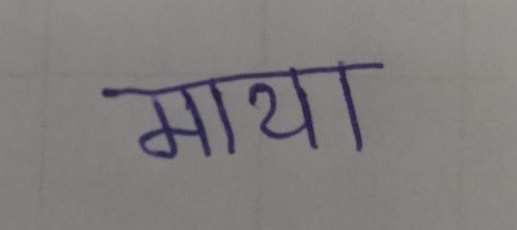 माथा